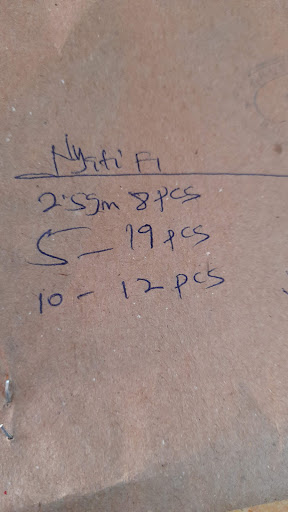 Nyati F1
2.5gm 8pcs
5 - 19pcs
10 - 12 pcs